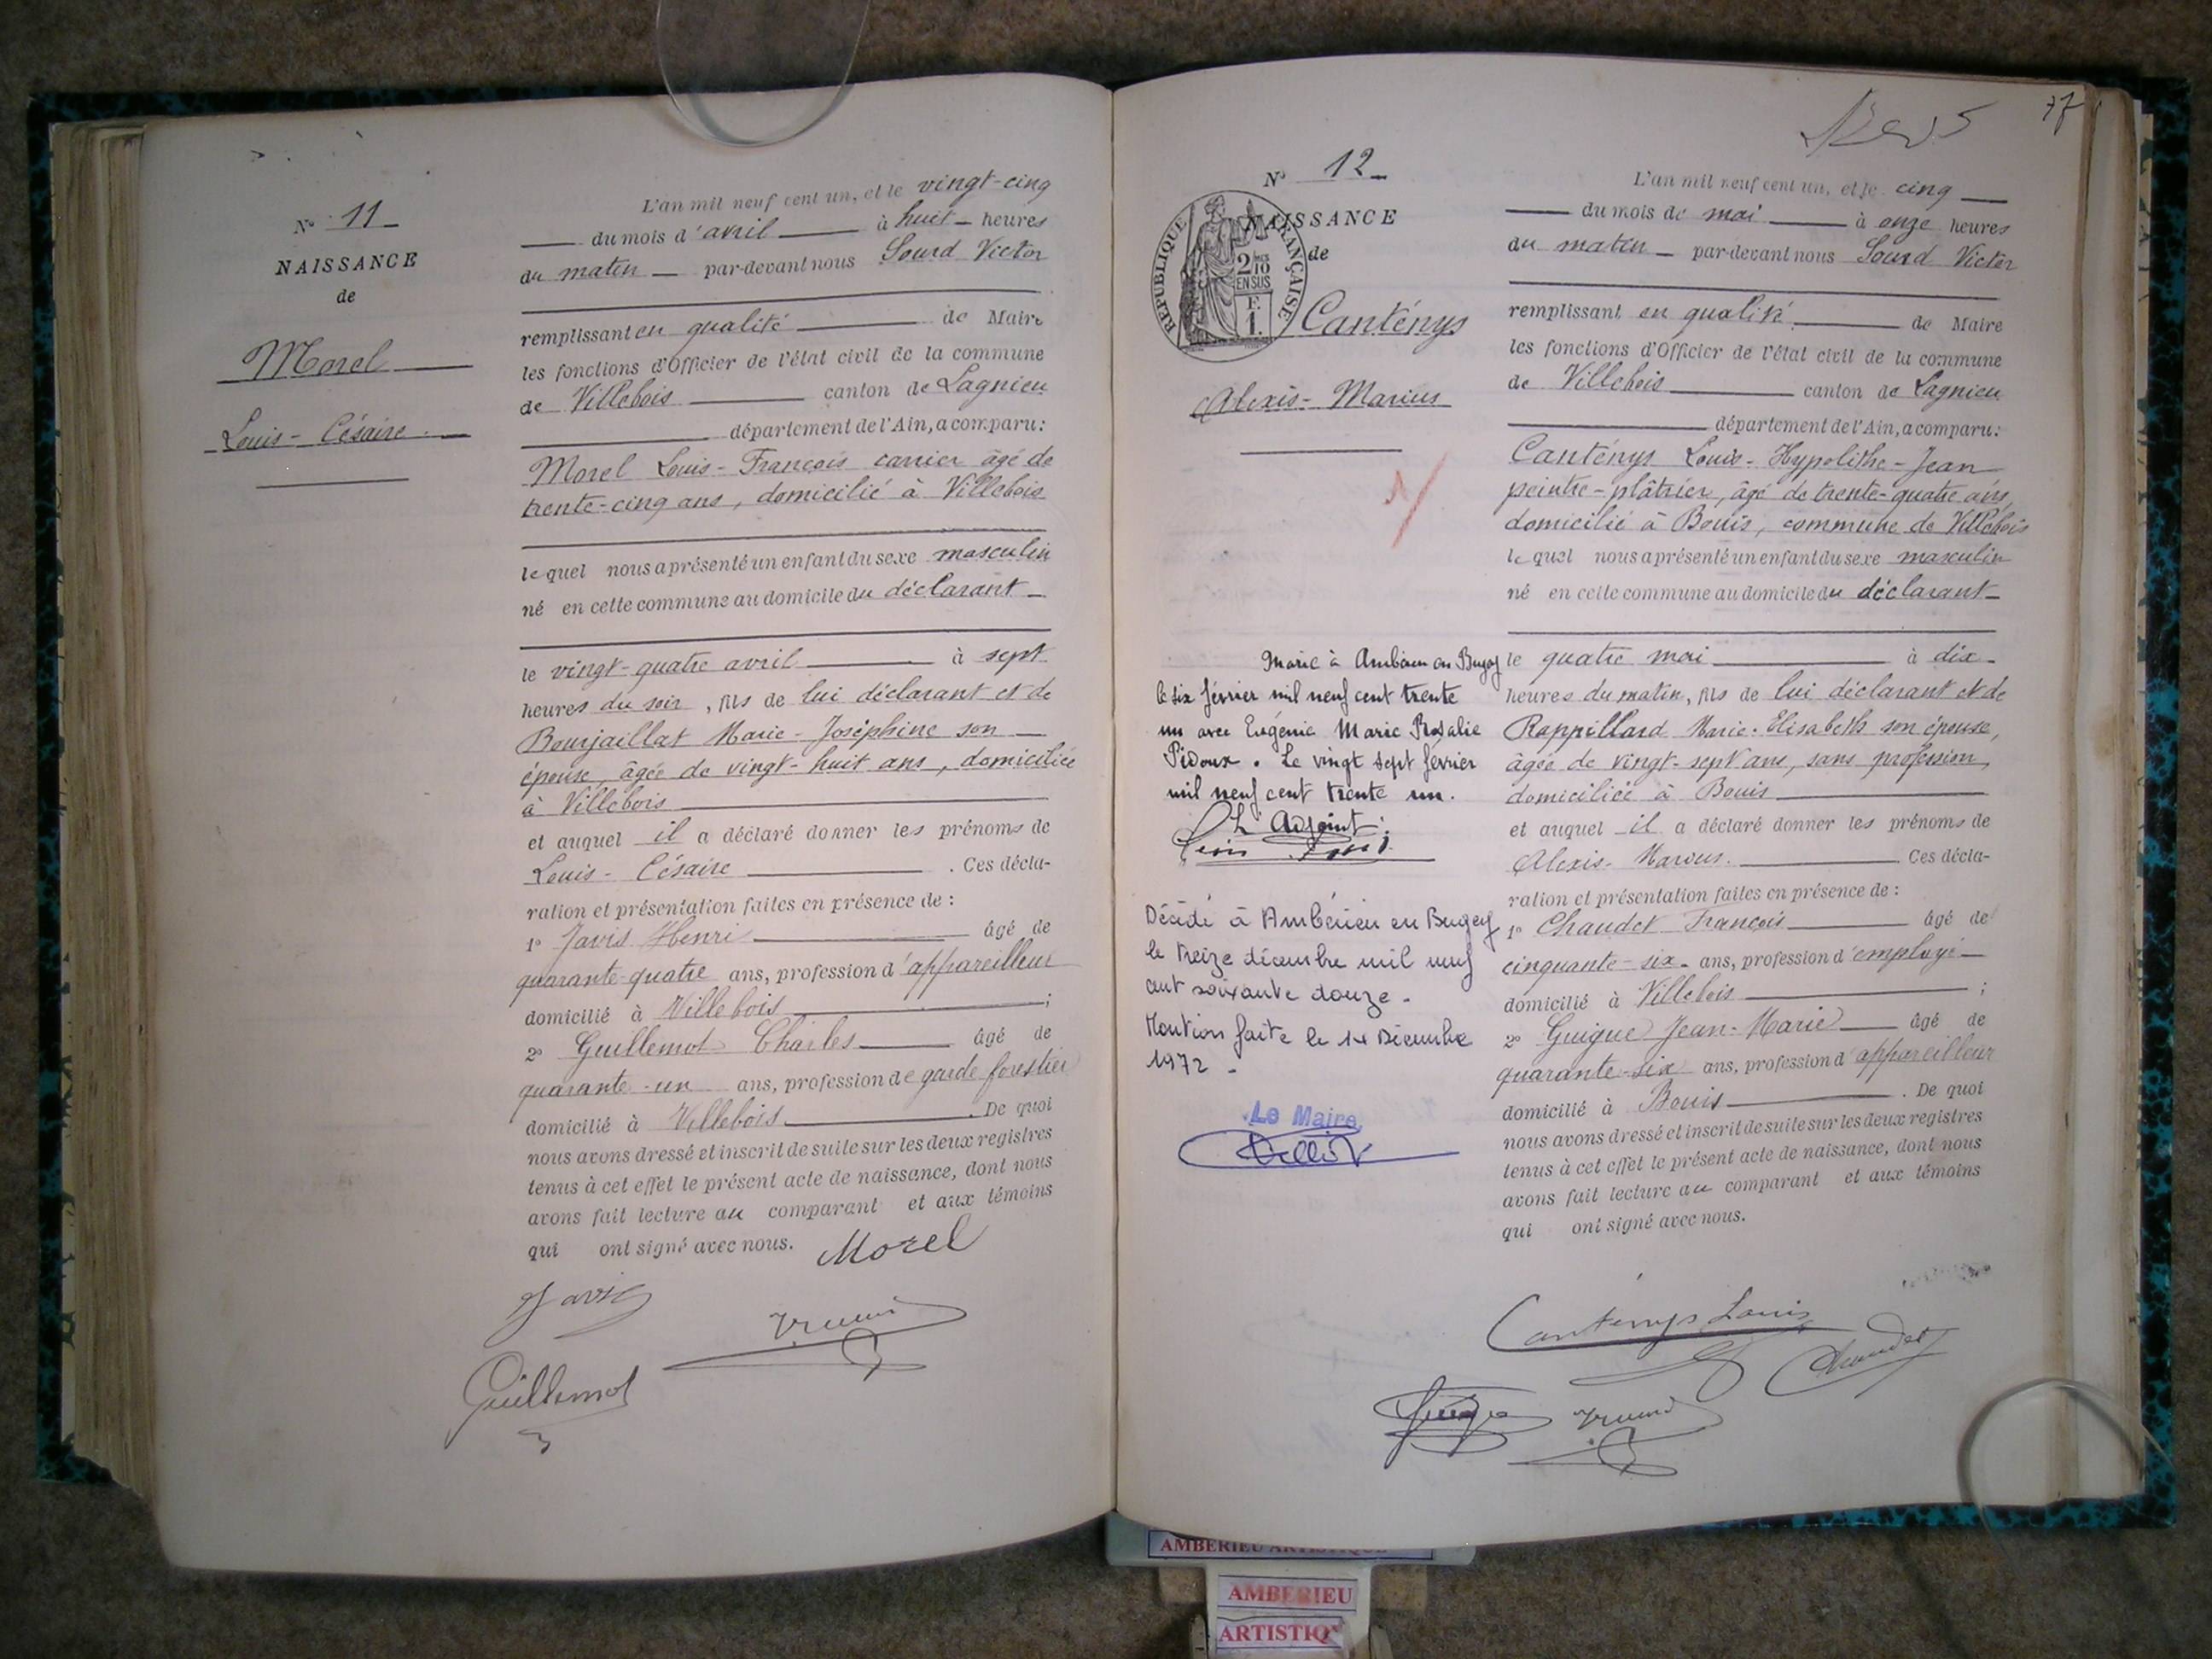 Nº 11
NAISSANCE
de
Morel
Louis - Césaire.
L'an mil neuf cent un, et le vingt-cinq
du mois d'avril à huit heures
du matin par-devant nous Sourd Victor
remplissant en qualité de Maire
les fonctions d'Officier de l'état civil de la commune
de Villebois canton de Lagnieu
département de l'Ain, a comparu:
Morel Louis-François carrier âgé de
trente-cinq ans, domicilié à Villebois
lequel nous a présenté un enfant du sexe masculin
né en cette commune au domicile du déclarant
le vingt-quatre avril à sept
heures du soir, fils de lui déclarant et de
Bourjaillat Marie-Joséphine son
épouse, âgée de vingt-huit ans, domiciliée
à Villebois
et auquel il a déclaré donner les prénoms de
Louis - Césaire. Ces décla-
ration et présentation faites en présence de :
1º Javis Henri âgé de
quarante-quatre ans, profession d'appareilleur
domicilié à Villebois ;
2º Guillemot Charles âgé de
quarante-un ans, profession de garde forestier
domicilié à Villebois. De quoi
nous avons dressé et inscrit de suite sur les deux registres
tenus à cet effet le présent acte de naissance, dont nous
avons fait lecture au comparant et aux témoins
qui ont signé avec nous. Morel
Javis
Guillemot
77
Nº 12
NAISSANCE
de
REPUBLIQUE FRANÇAISE
2/10
EN SUS
F.
1.
Canténys
Alexis-Marius
Marié à Ambérieu en Bugey
le six février mil neuf cent trente
un avec Eugénie Marie Rosalie
Pidoux. Le vingt sept février
mil neuf cent trente un.
L'Adjoint:
Décédé à Ambérieu en Bugey
le treize décembre mil neuf
cent soixante douze.
Mention faite le 14 Décembre
1972
Le Maire,
L'an mil neuf cent un, et le cinq
du mois de mai à onze heures
du matin par-devant nous Sourd Victor
remplissant en qualité de Maire
les fonctions d'Officier de l'état civil de la commune
de Villebois canton de Lagnieu
département de l'Ain, a comparu:
Canténys Louis-Hypolithe-Jean
peintre-plâtrier, âgé de trente-quatre ans,
domicilié à Bouis, commune de Villebois
lequel nous a présenté un enfant du sexe masculin
né en cette commune au domicile du déclarant
le quatre mai à dix
heures du matin, fils de lui déclarant et de
Rappillard Marie-Elisabeth son épouse,
âgée de vingt-sept ans, sans profession,
domiciliée à Bouis
et auquel il a déclaré donner les prénoms de
Alexis-Marius. Ces décla-
ration et présentation faites en présence de :
1º Chaudet François âgé de
cinquante-six ans, profession d'employé
domicilié à Villebois ;
2º Guigue Jean-Marie âgé de
quarante-six ans, profession d'appareilleur
domicilié à Bouis. De quoi
nous avons dressé et inscrit de suite sur les deux registres
tenus à cet effet le présent acte de naissance, dont nous
avons fait lecture au comparant et aux témoins
qui ont signé avec nous.
Canténys Louis
Chaudet
Guigue
AMBERIEU ARTISTIQUE
AMBERIEU
ARTISTIQ